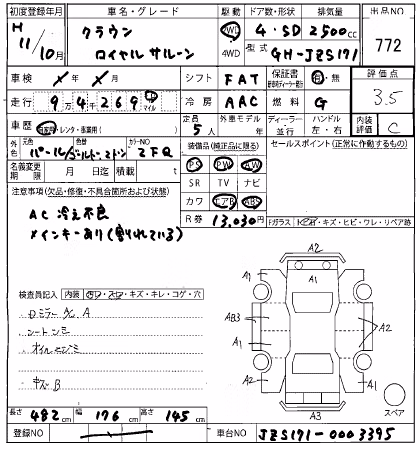 初度登録年月 車名・グレード 駆動 ドア数・形状 排気量 出品NO
H 11/10月 クラウン ロイヤルサルーン 2WD 4WD 4・SD 2500cc 772
型式 GH-JZS171
車検 年 月 シフト FAT 保証書 有・無 評価点
走行 9万4千269 km マイル 冷房 AAC 燃料 G 3.5
車歴 自家用・レンタ・事業用( ) 定員 5人 外車モデル 年 ディーラー・並行 ハンドル 左・右 内装評価 C
外色 元色 パール/ 色替 カラーNO 2FQ 装備品(純正品に限る) セールスポイント(正常に作動するもの)
名義変更期限 月 日迄 積載量 t PS PW AW
注意事項(欠品・修復・不具合箇所および状態) SR TV ナビ
AC 冷え不良 カワ エアB ABS
メインキーあり(割れている) R券 13,030円
Fガラス キズ・ヒビ・ウレ・リペア跡
検査員記入 内装 ・キズ・キレ・コゲ・穴
Dミラー A
シートシミ
キズ B
A2
A1 A1
AB3 A1 A2
A2 A1
A3
スペア
長さ 482cm 幅 176cm 高さ 145cm
登録NO 車台NO JZS171-0003395